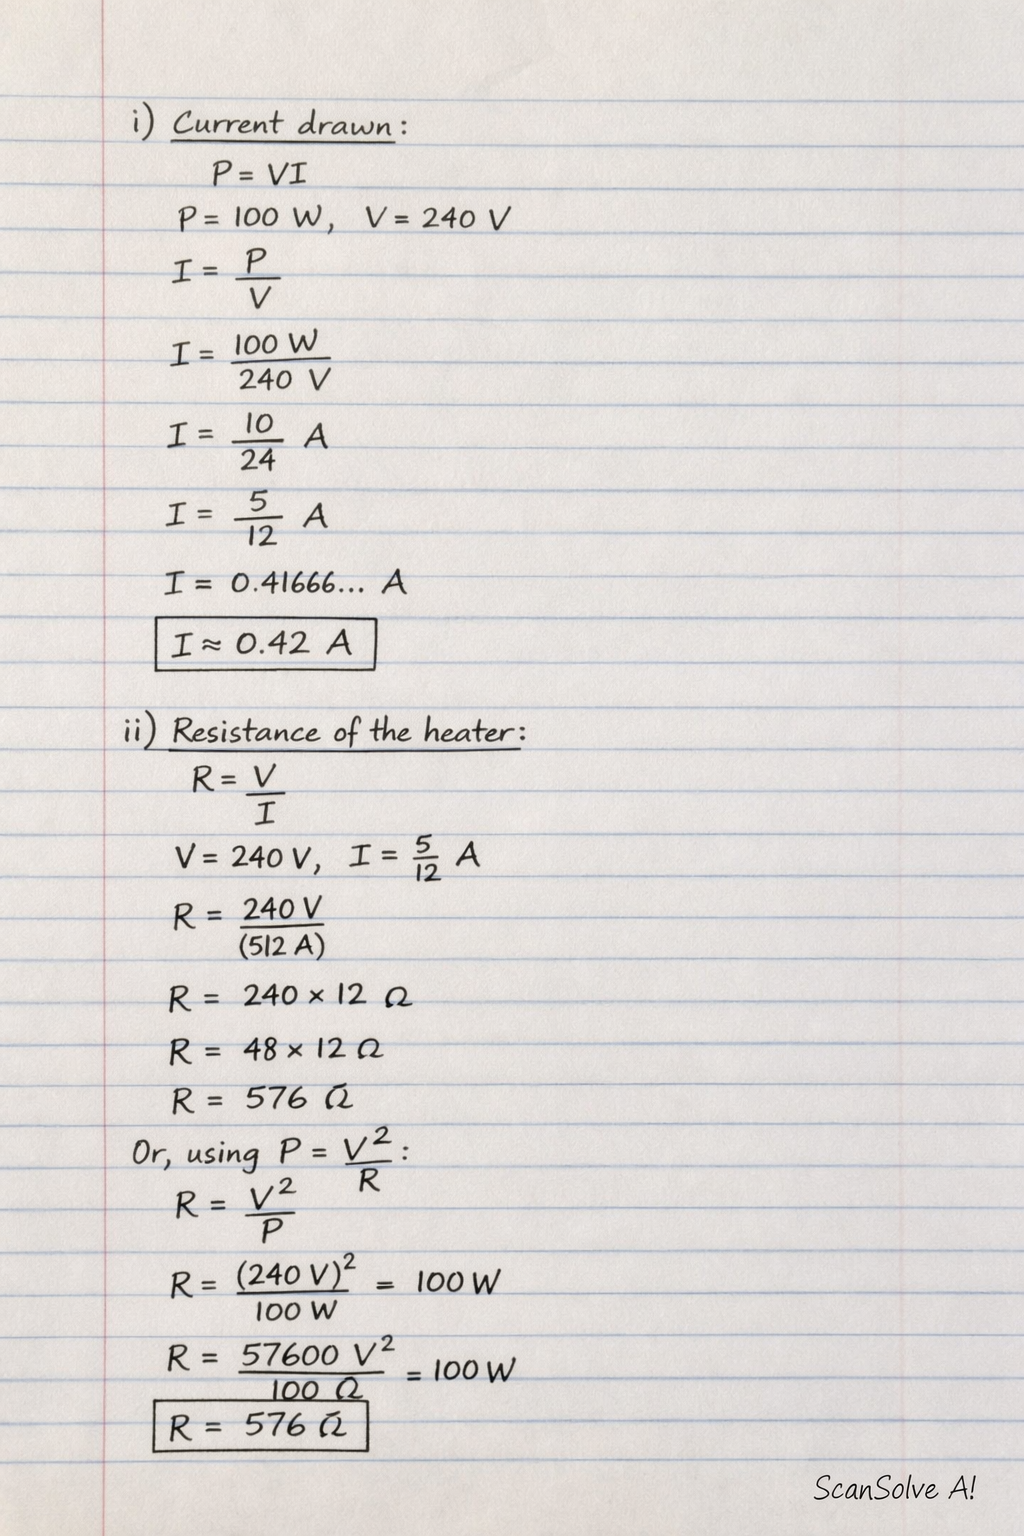 i) Current drawn:
P = VI
P = 100 W, V = 240 V
I = P/V
I = 100 W / 240 V
I = 10/24 A
I = 5/12 A
I = 0.41666... A
I ≈ 0.42 A
ii) Resistance of the heater:
R = V/I
V = 240 V, I = 5/12 A
R = 240 V / (512 A)
R = 240 × 12 Ω
R = 48 × 12 Ω
R = 576 Ω
Or, using P = V²/R :
R = V²/P
R = (240 V)² / 100 W = 100 W
R = 57600 V² / 100 Ω = 100 W
R = 576 Ω
ScanSolve A!